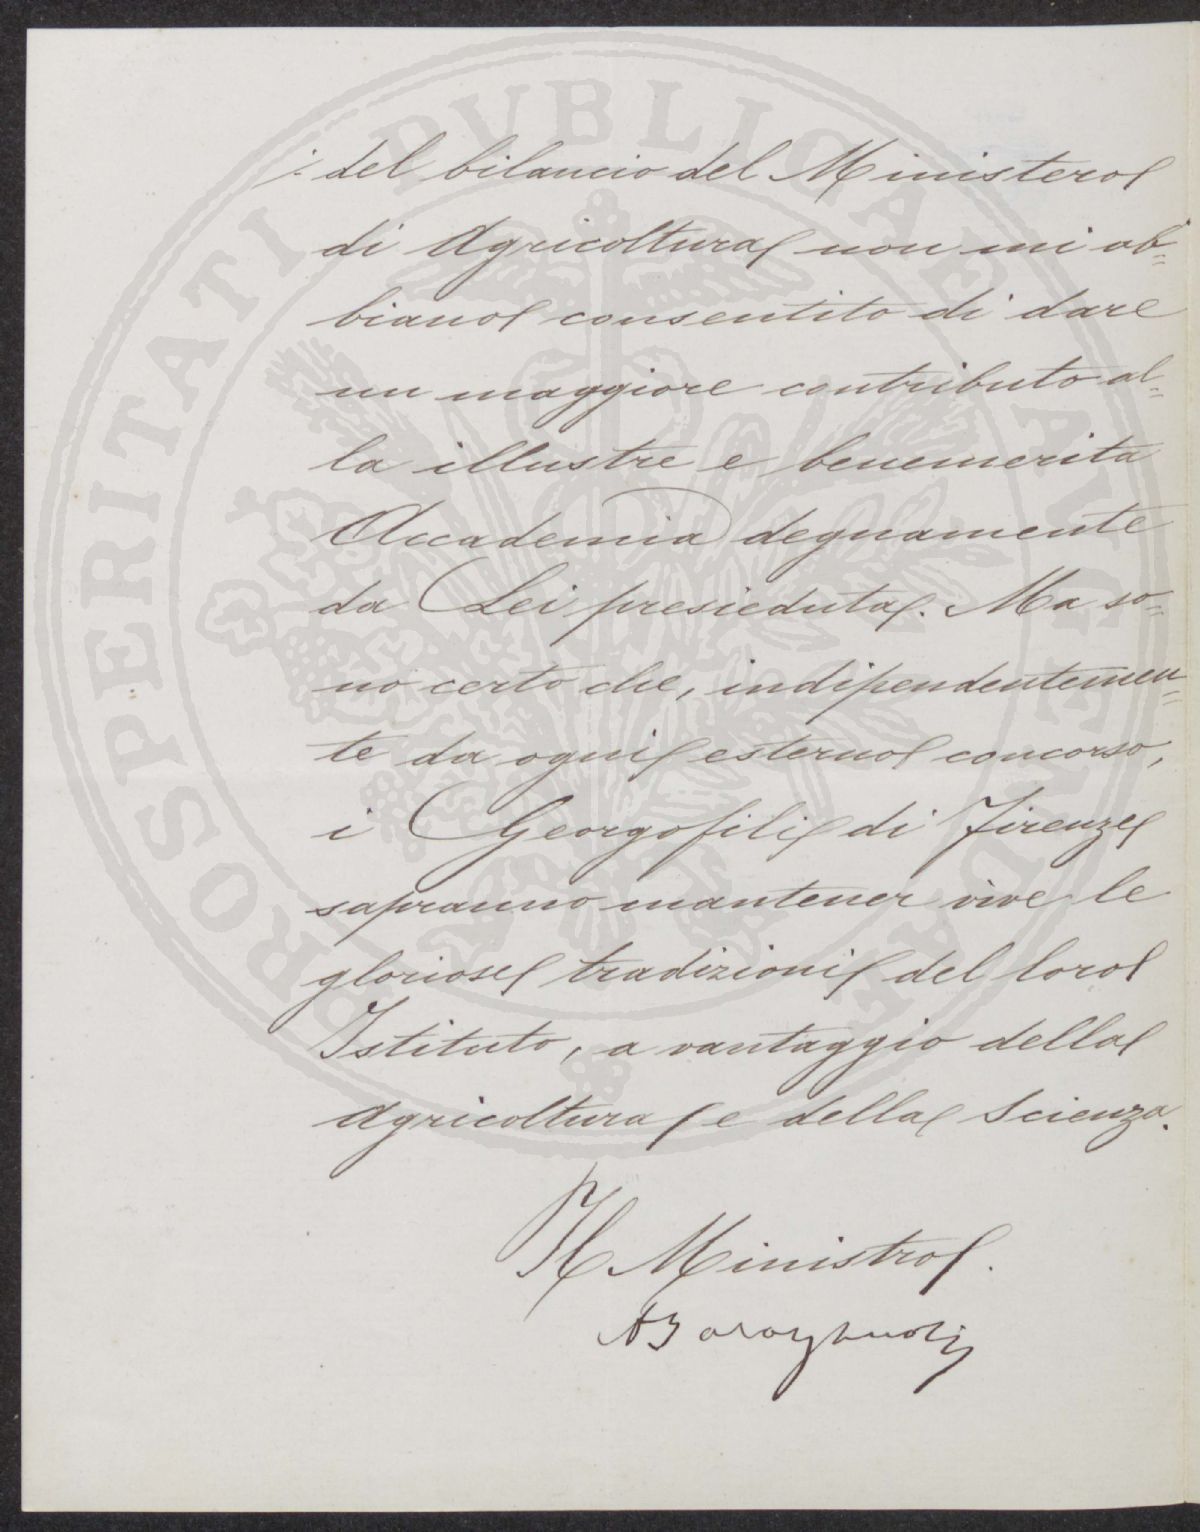 PROSPERITATI PUBLICAE AUGENDAE
del bilancio del Ministero
di Agricoltura non mi ab=
biano consentito di dare
un maggiore contributo al=
la illustre e benemerita
Accademia degnamente
da Lei presieduta. Ma so=
no certo che, indipendentemen=
te da ogni esterno concorso,
i Georgofili di Firenze
sapranno mantener vive le
gloriose tradizioni del loro
Istituto, a vantaggio della
Agricoltura e della Scienza.
Il Ministro.